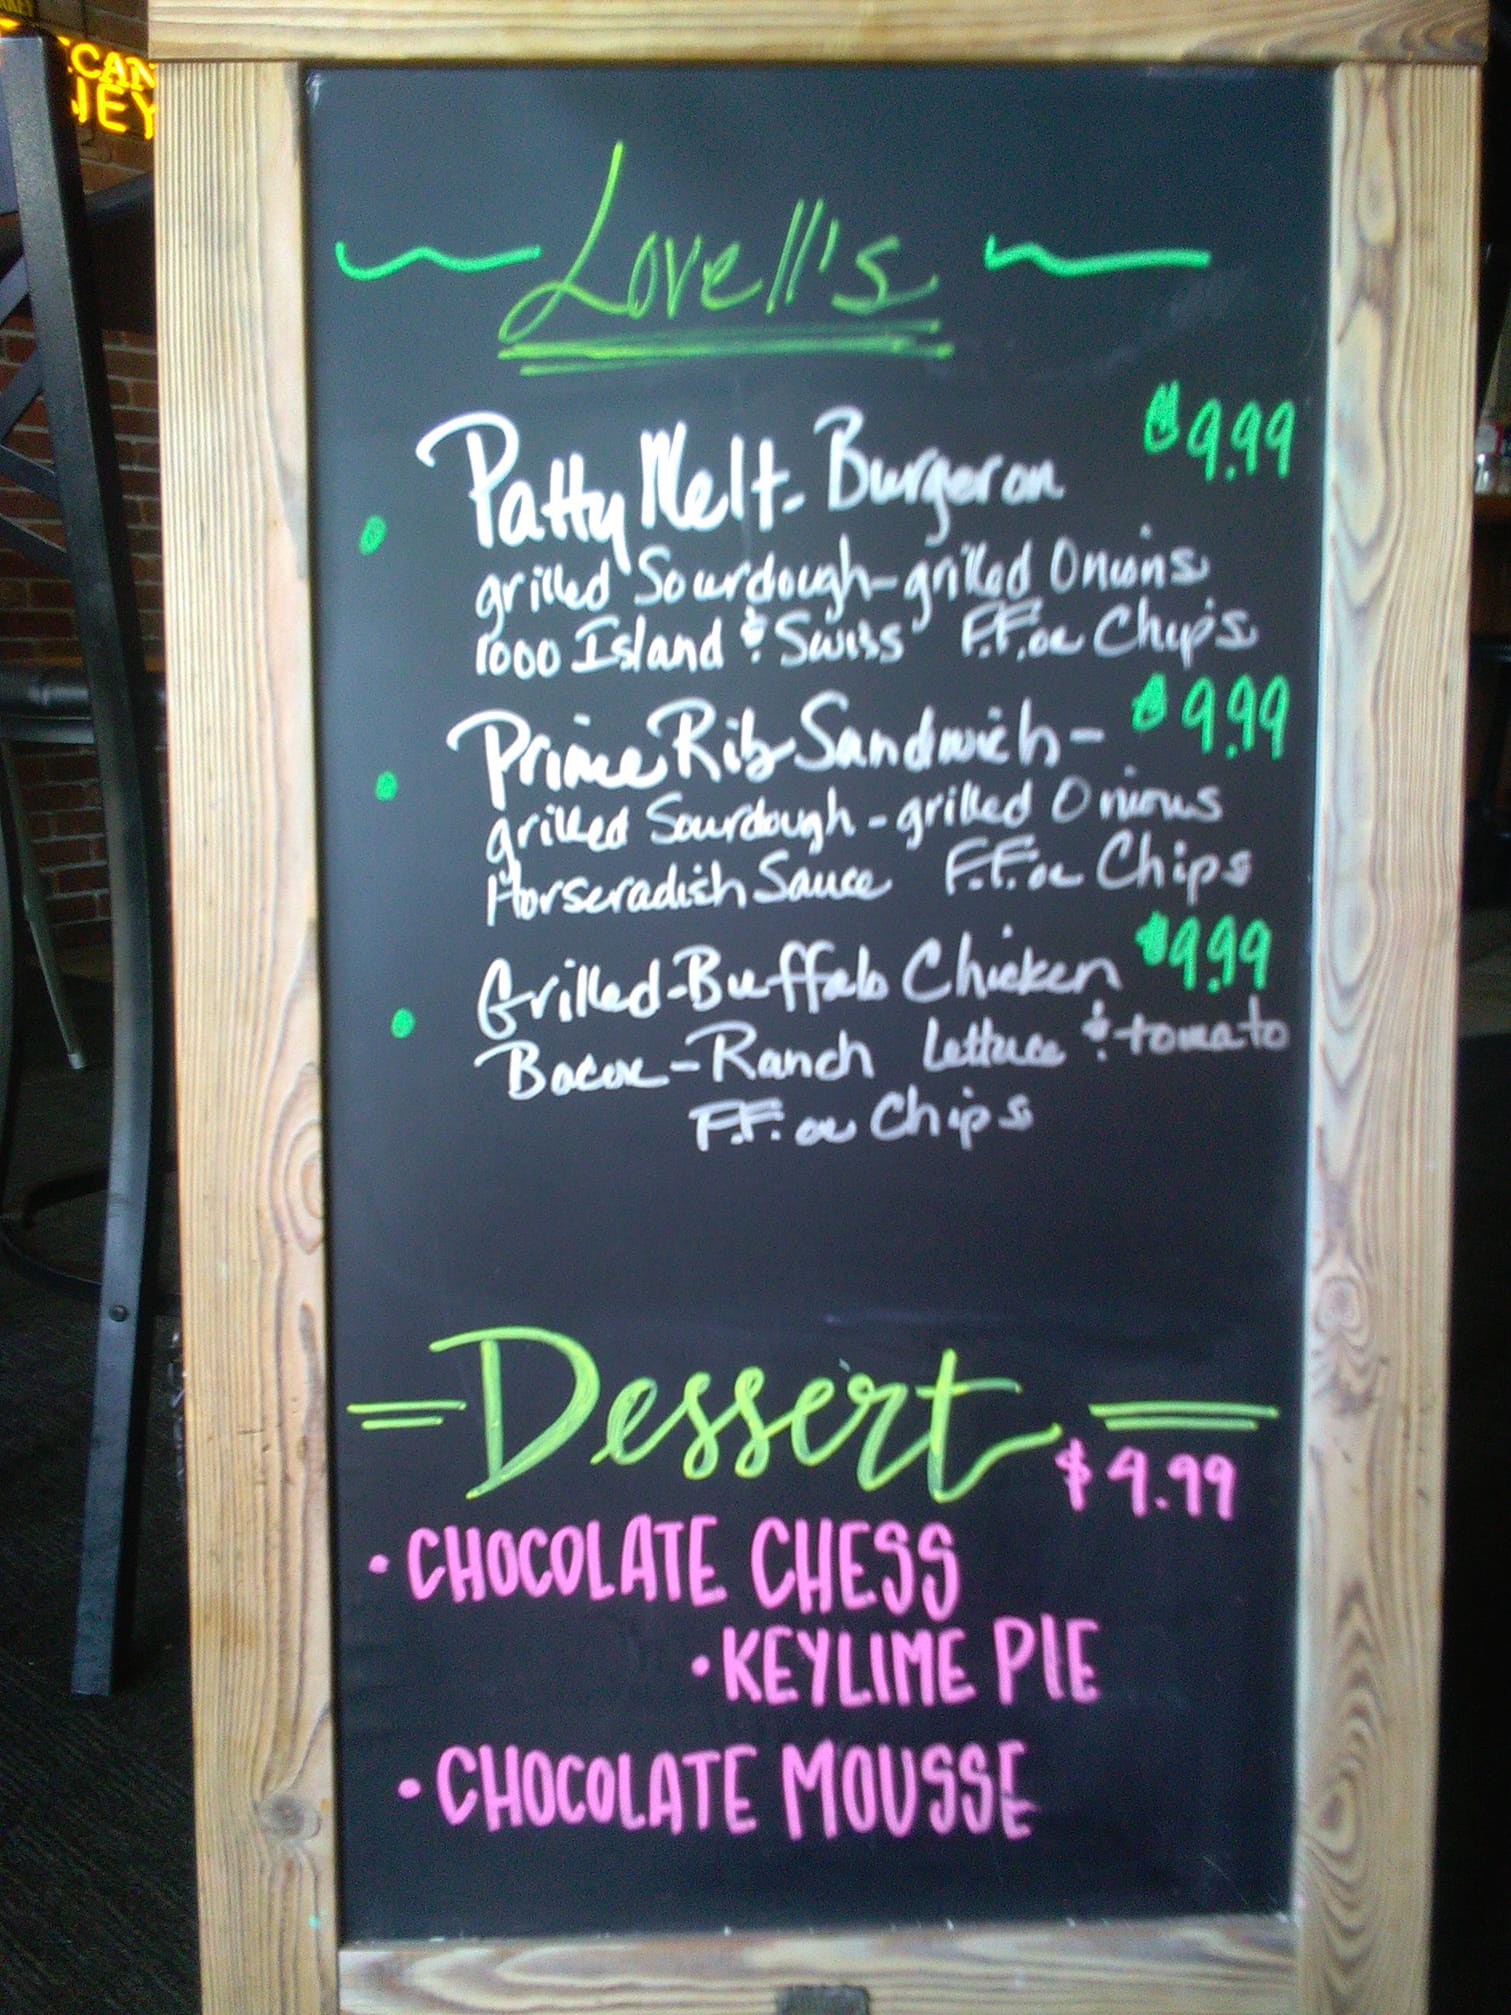 CAN
EY
Lovell's
Patty Melt - Burger on $9.99
grilled Sourdough - grilled Onions
1000 Island & Swiss F.F. or Chips
Prime Rib Sandwich - $9.99
grilled Sourdough - grilled Onions
Horseradish Sauce F.F. or Chips
Grilled - Buffalo Chicken $9.99
Bacon - Ranch Lettuce & tomato
F.F. or Chips
Dessert
$4.99
• CHOCOLATE CHESS
• KEYLIME PIE
• CHOCOLATE MOUSSE